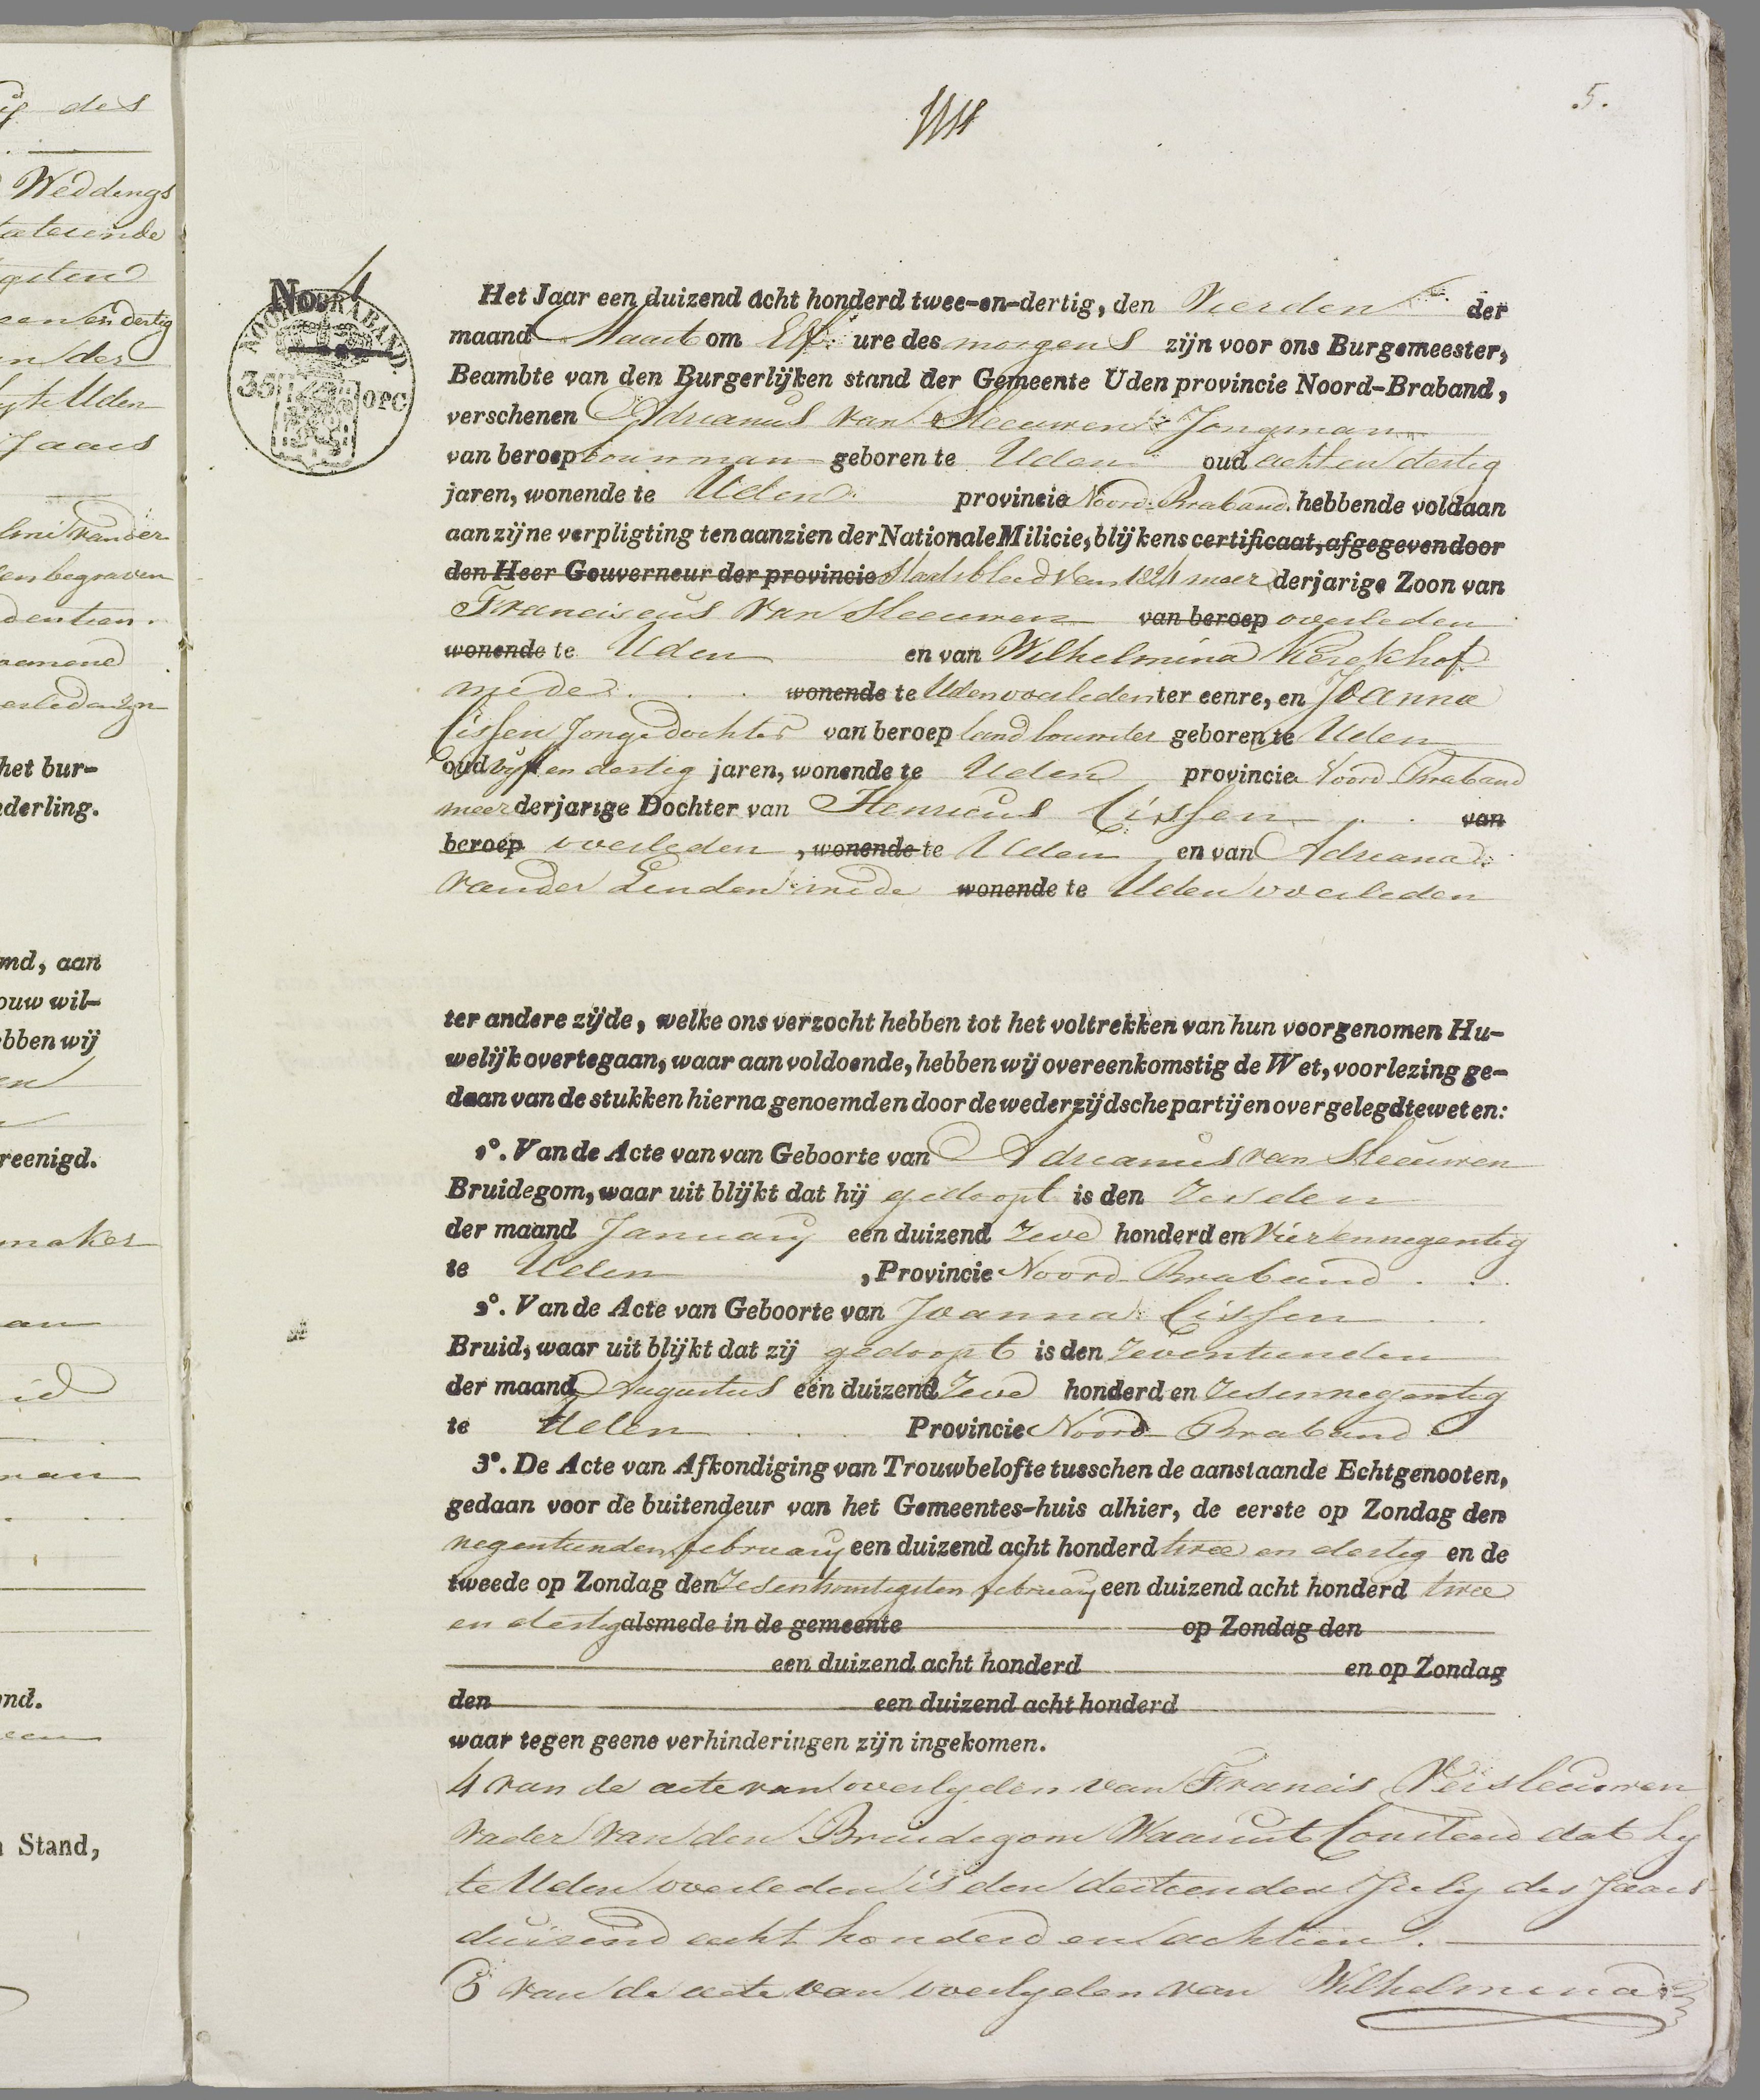 5.
No. 4
NOORD BRABAND.
35 OPC
Het Jaar een duizend acht honderd twee-en-dertig, den Vierden der
maand Maart om Elf ure des morgens zijn voor ons Burgemeester,
Beambte van den Burgerlijken stand der Gemeente Uden provincie Noord-Braband,
verschenen Adrianus van Sleeuwen Jongman
van beroep bouwman geboren te Uden oud acht en dertig
jaren, wonende te Uden provincie Noord-Braband hebbende voldaan
aan zijne verpligting ten aanzien der Nationale Milicie, blijkens certificaat, afgegeven door
den Heer Gouverneur der provincie Staatsblad van 1824 meerderjarige Zoon van
Franciscus van Sleeuwen van beroep overleden
wonende te Uden en van Wilhelmina Kerckhof
mede wonende te Uden overleden ter eenre, en Joanna
Cissen Jongedochter van beroep landbouwster geboren te Uden
oud vijf en dertig jaren, wonende te Uden provincie Noord Braband
meerderjarige Dochter van Henricus Cissen van
beroep overleden, wonende te Uden en van Adriana
vander Linden mede wonende te Uden overleden
ter andere zijde, welke ons verzocht hebben tot het voltrekken van hun voorgenomen Hu-
welijk overtegaan, waar aan voldoende, hebben wij overeenkomstig de Wet, voorlezing ge-
daan van de stukken hierna genoemd en door de wederzijdsche partijen overgelegd te weten:
1°. Van de Acte van van Geboorte van Adrianus van Sleeuwen
Bruidegom, waar uit blijkt dat hij gedoopt is den Zesden
der maand January een duizend Zeve honderd en Vierennegentig
te Uden, Provincie Noord Braband
2°. Van de Acte van Geboorte van Joanna Cissen
Bruid, waar uit blijkt dat zij gedoopt is den Zeventienden
der maand Augustus een duizend Zeve honderd en Zesennegentig
te Uden Provincie Noord Braband
3°. De Acte van Afkondiging van Trouwbelofte tusschen de aanstaande Echtgenooten,
gedaan voor de buitendeur van het Gemeentes-huis alhier, de eerste op Zondag den
negentienden february een duizend acht honderd twee en dertig en de
tweede op Zondag den Zesentwintigsten february een duizend acht honderd twee
en dertig alsmede in de gemeente op Zondag den
een duizend acht honderd en op Zondag
den een duizend acht honderd
waar tegen geene verhinderingen zijn ingekomen.
4 van de acte van overlyden van Francis Versleeuwen
vader van den Bruidegom Waaruit Consteerd dat hy
te Uden overleden is den dertienden July des Jaars
duizend acht honderd en achtien.
5 van de acte van overlyden van Wilhelmina
ij des
Weddings
en dertig
Uden
Jaars
vander
en begraven
het bur-
derling.
md, aan
ouw wil-
bben wij
reenigd.
maker
nd.
Stand,